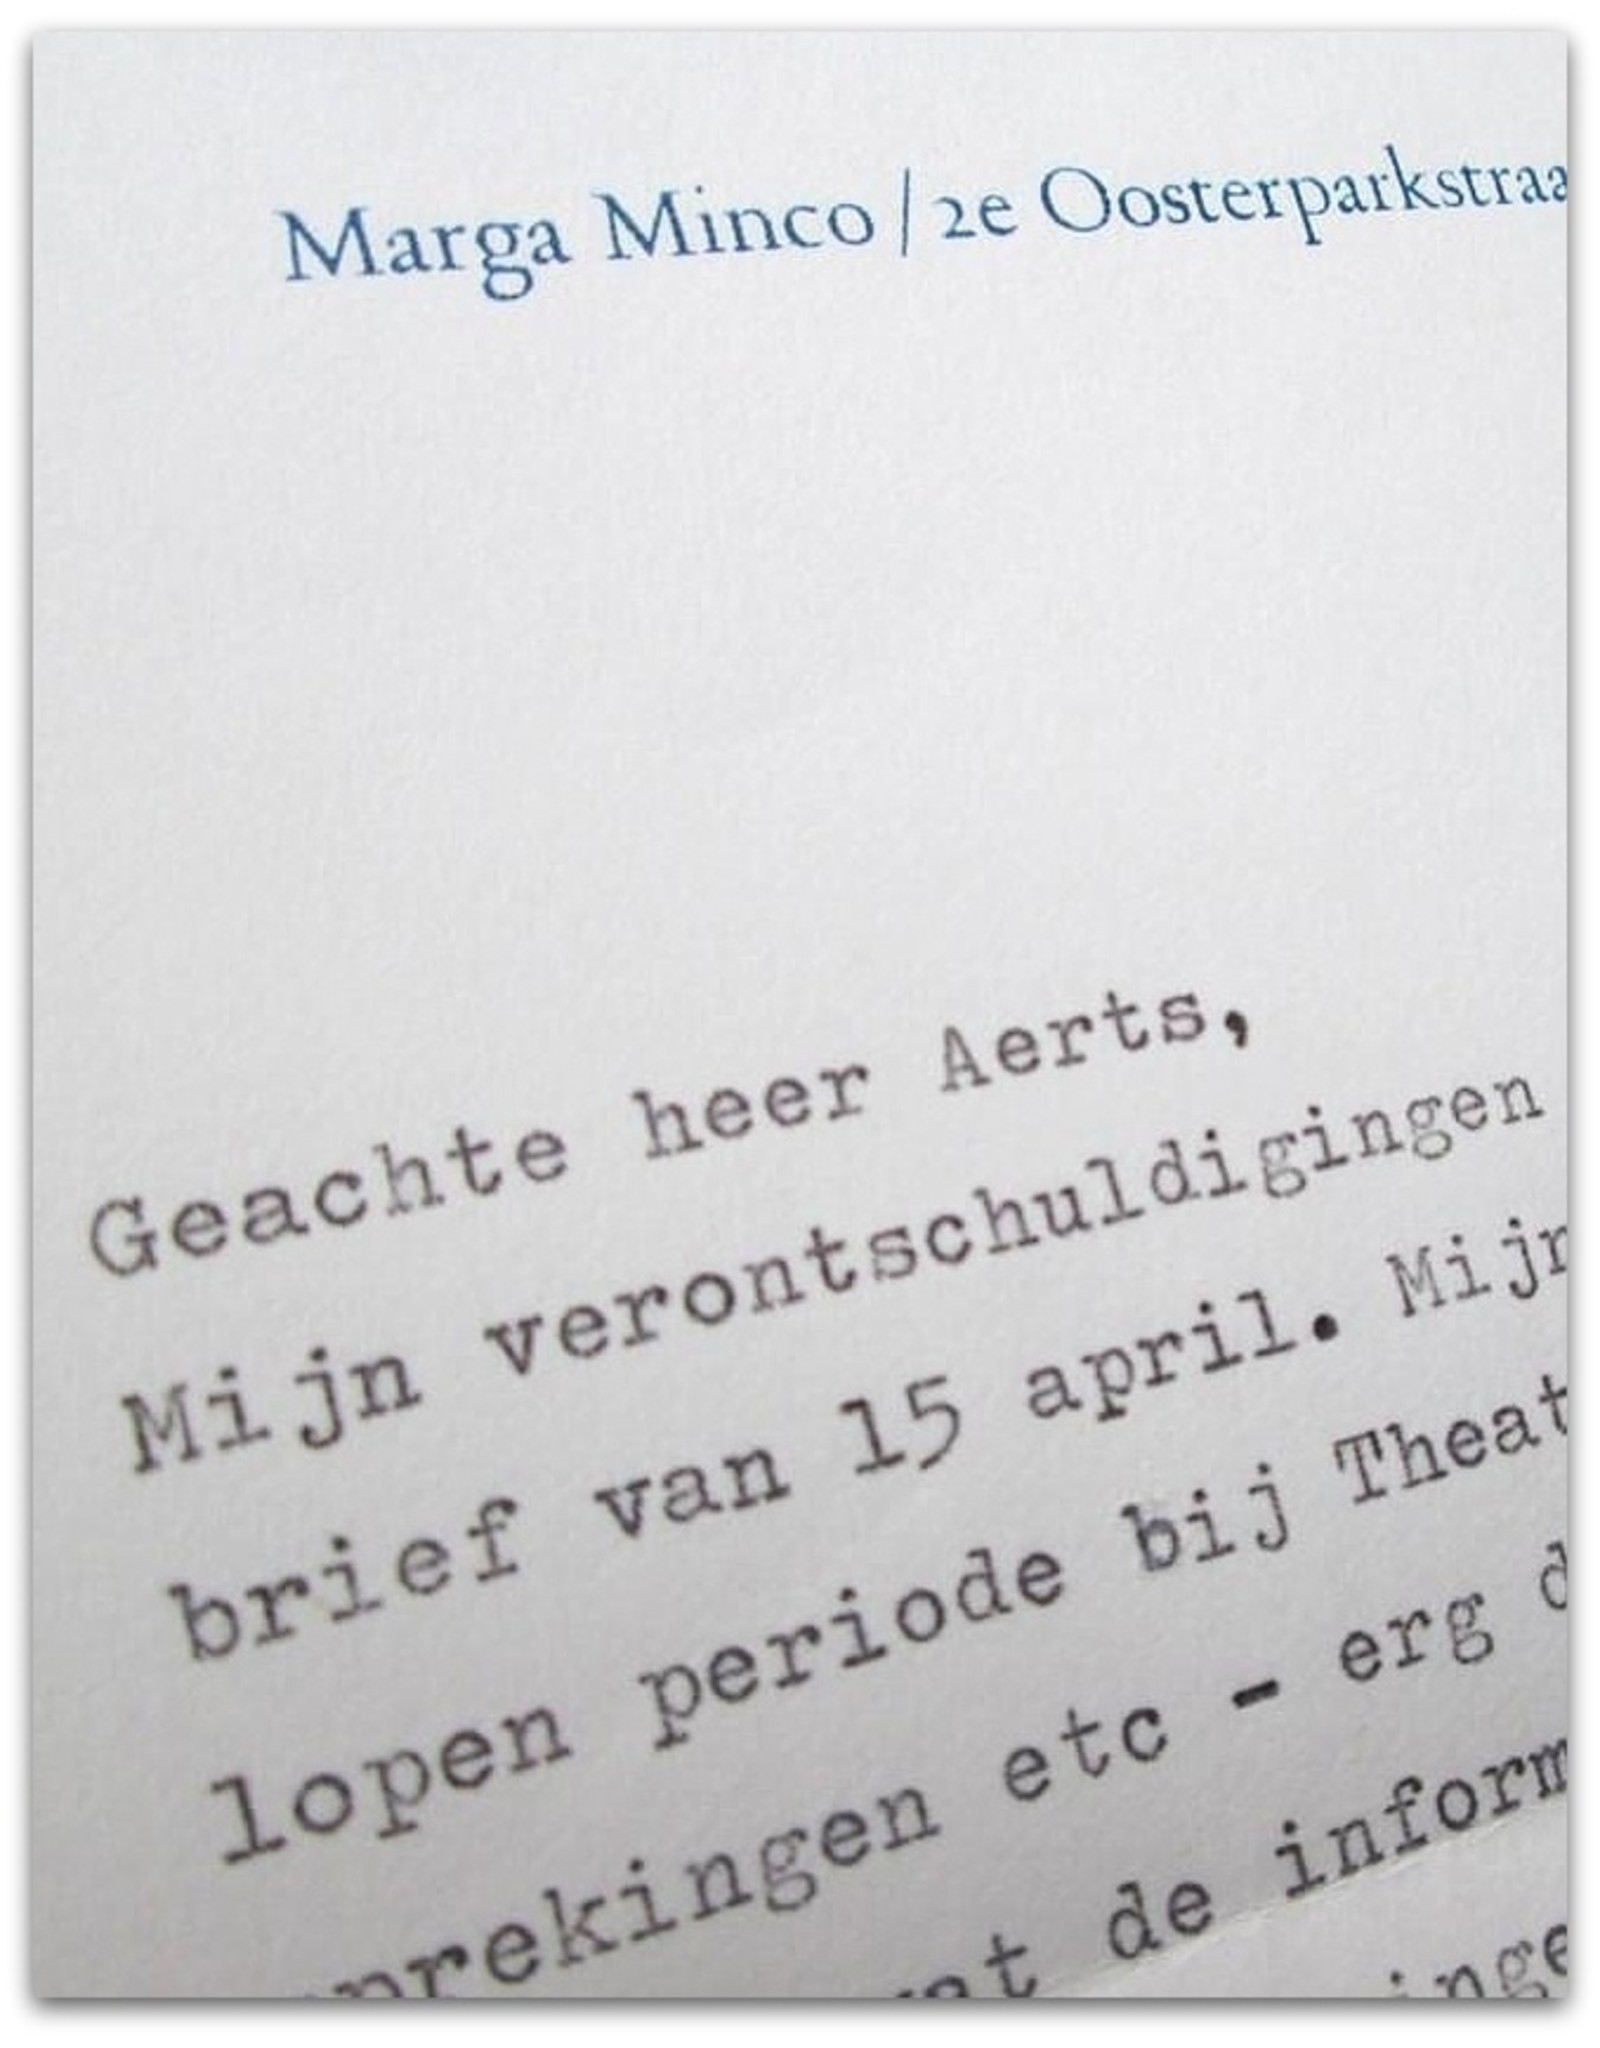 Marga Minco / 2e Oosterparkstraa
Geachte heer Aerts,
Mijn verontschuldigingen
brief van 15 april. Mijn
lopen periode bij Theat
prekingen etc - erg d
de inform